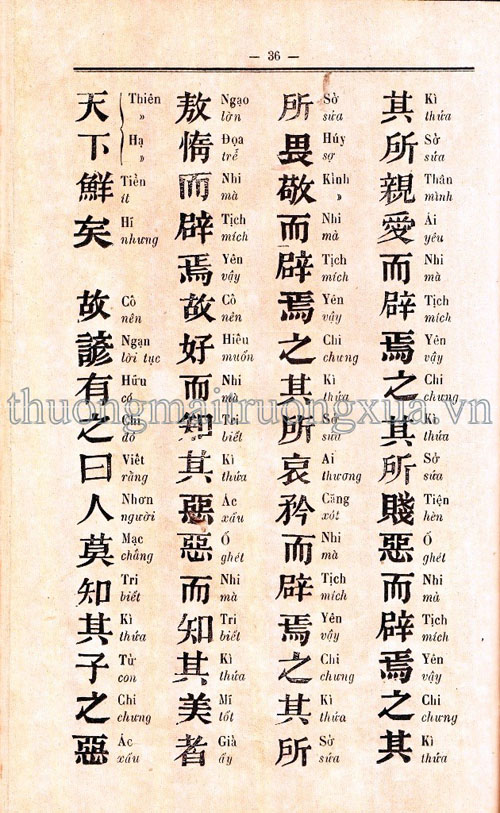 — 36 —
其 Kì thửa
所 Sở sửa
親 Thân mình
愛 Ái yêu
而 Nhi mà
辟 Tịch mích
焉 Yên vậy
之 Chi chưng
其 Kì thửa
所 Sở sửa
賤 Tiện hèn
惡 Ố ghét
而 Nhi mà
辟 Tịch mích
焉 Yên vậy
之 Chi chưng
其 Kì thửa
所 Sở sửa
畏 Húy sợ
敬 Kính »
而 Nhi mà
辟 Tịch mích
焉 Yên vậy
之 Chi chưng
其 Kì thửa
所 Sở sửa
哀 Ai thương
矜 Căng xót
而 Nhi mà
辟 Tịch mích
焉 Yên vậy
之 Chi chưng
其 Kì thửa
所 Sở sửa
敖 Ngạo lờn
惰 Đọa trễ
而 Nhi mà
辟 Tịch mích
焉 Yên vậy
故 Cô nên
好 Hiếu muốn
而 Nhi mà
知 Tri biết
其 Kì thửa
惡 Ác xấu
惡 Ố ghét
而 Nhi mà
知 Tri biết
其 Kì thửa
美 Mĩ tốt
者 Giả ấy
天 Thiên »
下 Hạ »
鮮 Tiển ít
矣 Hĩ nhưng
故 Cô nên
諺 Ngạn lời tục
有 Hữu có
之 Chi đó
曰 Viết rằng
人 Nhơn người
莫 Mạc chẳng
知 Tri biết
其 Kì thửa
子 Tử con
之 Chi chưng
惡 Ác xấu
thuongmaitruongxua.vn